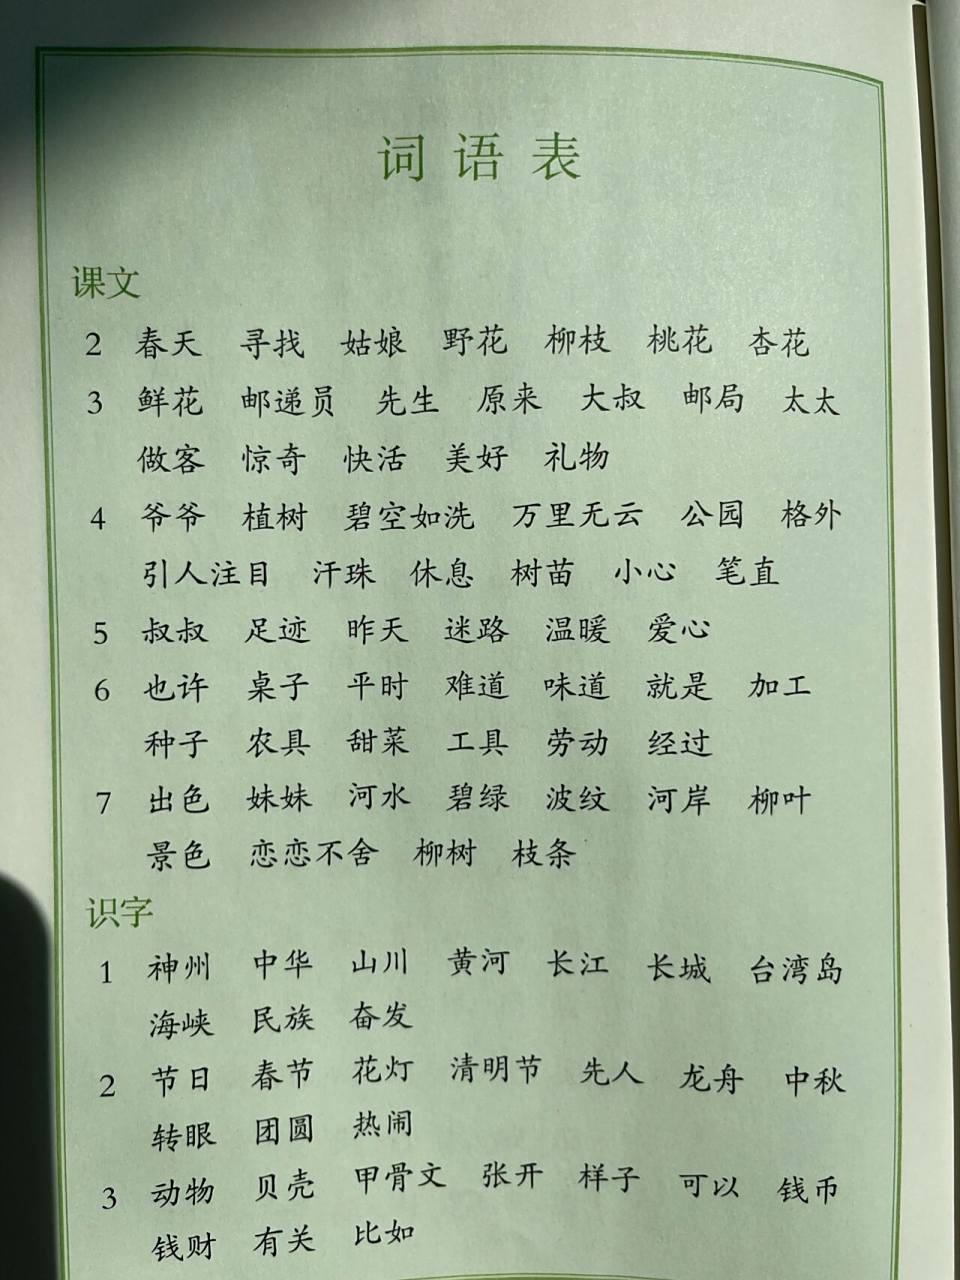 词语表
课文
2 春天 寻找 姑娘 野花 柳枝 桃花 杏花
3 鲜花 邮递员 先生 原来 大叔 邮局 太太
做客 惊奇 快活 美好 礼物
4 爷爷 植树 碧空如洗 万里无云 公园 格外
引人注目 汗珠 休息 树苗 小心 笔直
5 叔叔 足迹 昨天 迷路 温暖 爱心
6 也许 桌子 平时 难道 味道 就是 加工
种子 农具 甜菜 工具 劳动 经过
7 出色 妹妹 河水 碧绿 波纹 河岸 柳叶
景色 恋恋不舍 柳树 枝条
识字
1 神州 中华 山川 黄河 长江 长城 台湾岛
海峡 民族 奋发
2 节日 春节 花灯 清明节 先人 龙舟 中秋
转眼 团圆 热闹
3 动物 贝壳 甲骨文 张开 样子 可以 钱币
钱财 有关 比如